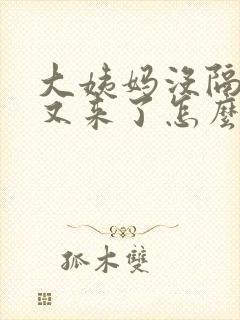 大姨妈没隔
又来了怎麼
孤木雙